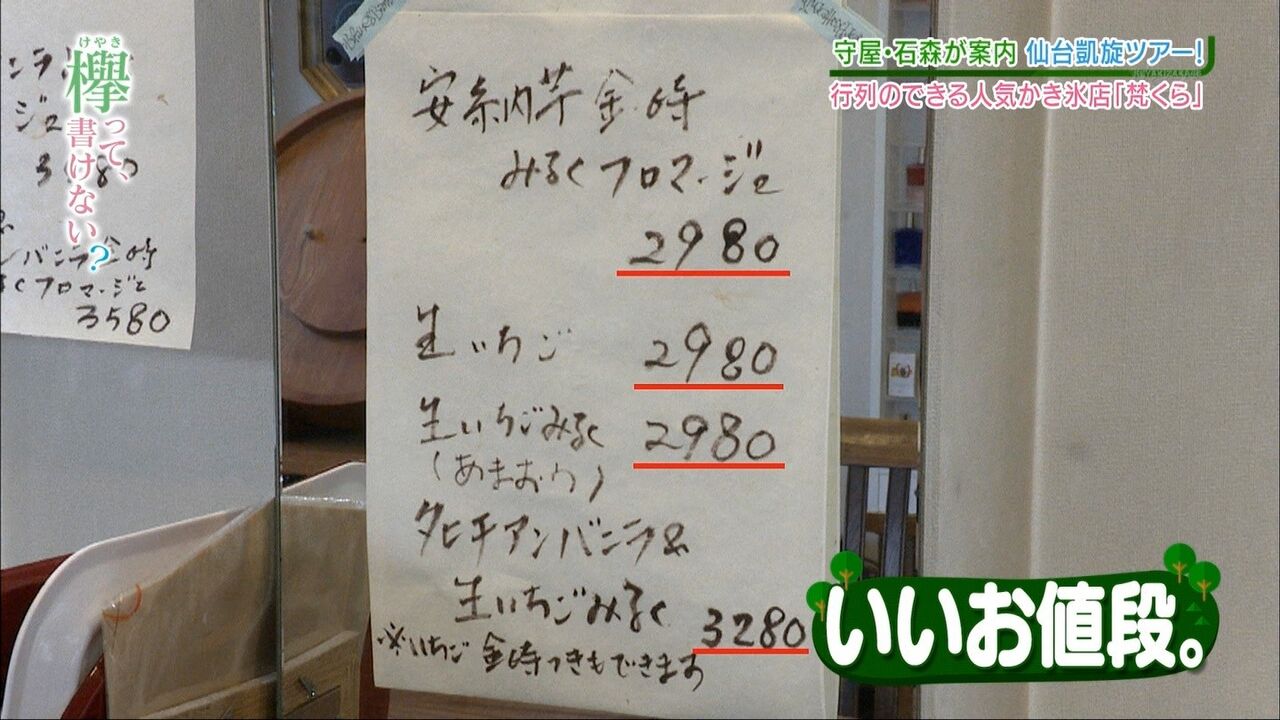 けやき
欅って、
書けない?
守屋・石森が案内 仙台凱旋ツアー!
KEYAKIZAKA46
行列のできる人気かき氷店「梵くら」
安納芋金時
みるくフロマージュ
2980
生いちご 2980
生いちごみるく 2980
(あまおう)
タヒチアンバニラ&
生いちごみるく 3280
※いちご金時つきもできます
3580
いいお値段。